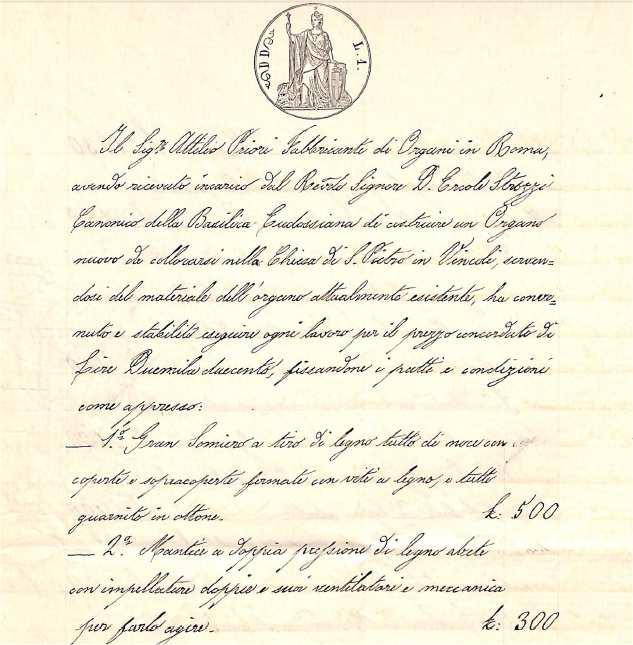 L. 1.
Il Sig.r Attilio Priori Fabbricante di Organi in Roma,
avendo ricevuto incarico dal Rev̄do Signore D. Ercole Strozzi
Canonico della Basilica Eudossiana di costruire un Organo
nuovo da collocarsi nella Chiesa di S. Pietro in Vincoli, serven=
dosi del materiale dell'organo attualmente esistente, ha conve=
nuto e stabilito eseguire ogni lavoro per il prezzo concordato di
Lire Duemila duecento, fissandone i patti e condizioni
come appresso:
— 1.o Gran Somiero a tiro di legno tutto di noce con
coperte e sopracoperte fermate con viti a legno, e tutto
guarnito in ottone. £: 500
— 2.o Mantice a doppia pressione di legno abete
con impellature doppie e suoi ventilatori e meccanica
per farlo agire. £: 300